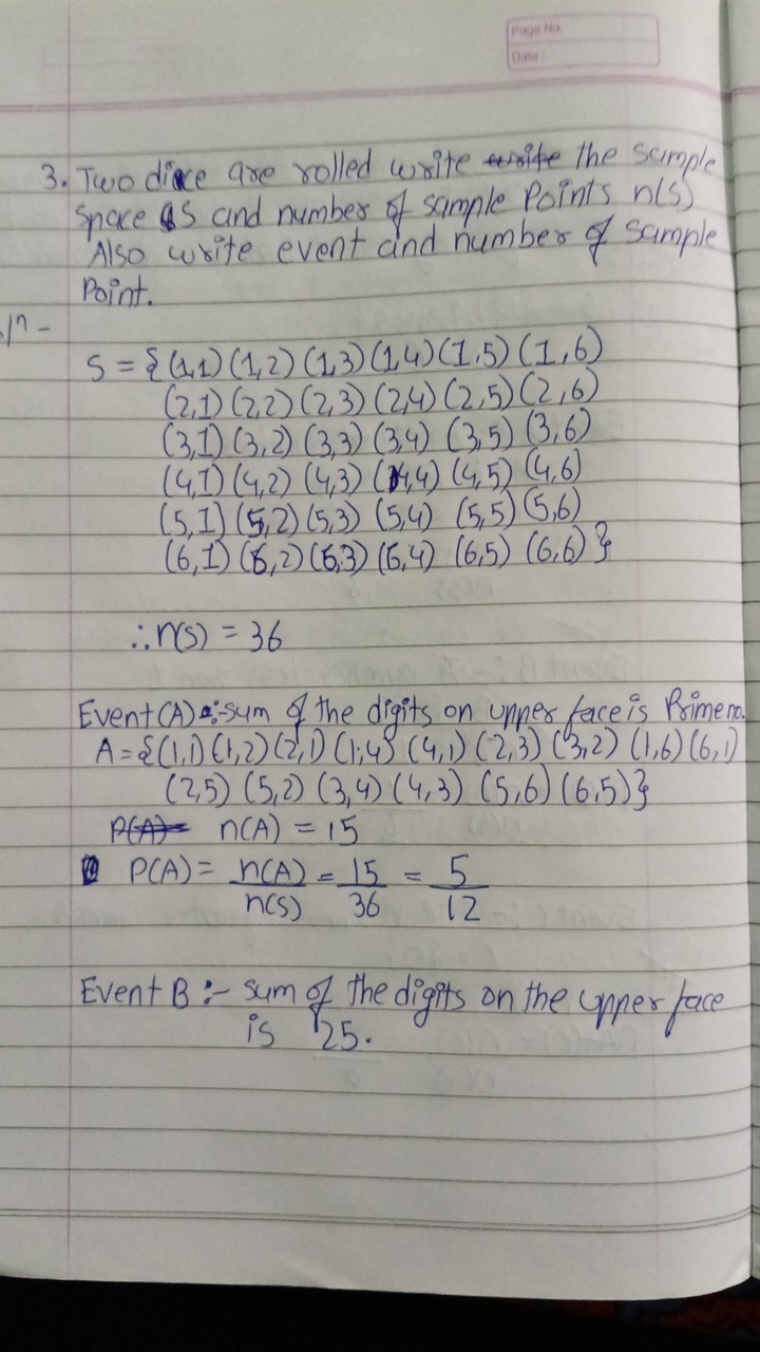 Page No:
Date:
3. Two dice are rolled write the sample
Space S and number of sample Points n(s)
Also write event and number of sample
Point.
S = {(1,1) (1,2) (1,3) (1,4) (1,5) (1,6)
(2,1) (2,2) (2,3) (2,4) (2,5) (2,6)
(3,1) (3,2) (3,3) (3,4) (3,5) (3,6)
(4,1) (4,2) (4,3) (4,4) (4,5) (4,6)
(5,1) (5,2) (5,3) (5,4) (5,5) (5,6)
(6,1) (6,2) (6,3) (6,4) (6,5) (6,6)}
∴ n(s) = 36
Event (A) :- sum of the digits on upper face is Prime no.
A = {(1,1) (1,2) (2,1) (1,4) (4,1) (2,3) (3,2) (1,6) (6,1)
(2,5) (5,2) (3,4) (4,3) (5,6) (6,5)}
n(A) = 15
P(A) = n(A)/n(s) = 15/36 = 5/12
Event B :- sum of the digits on the upper face
is 25.